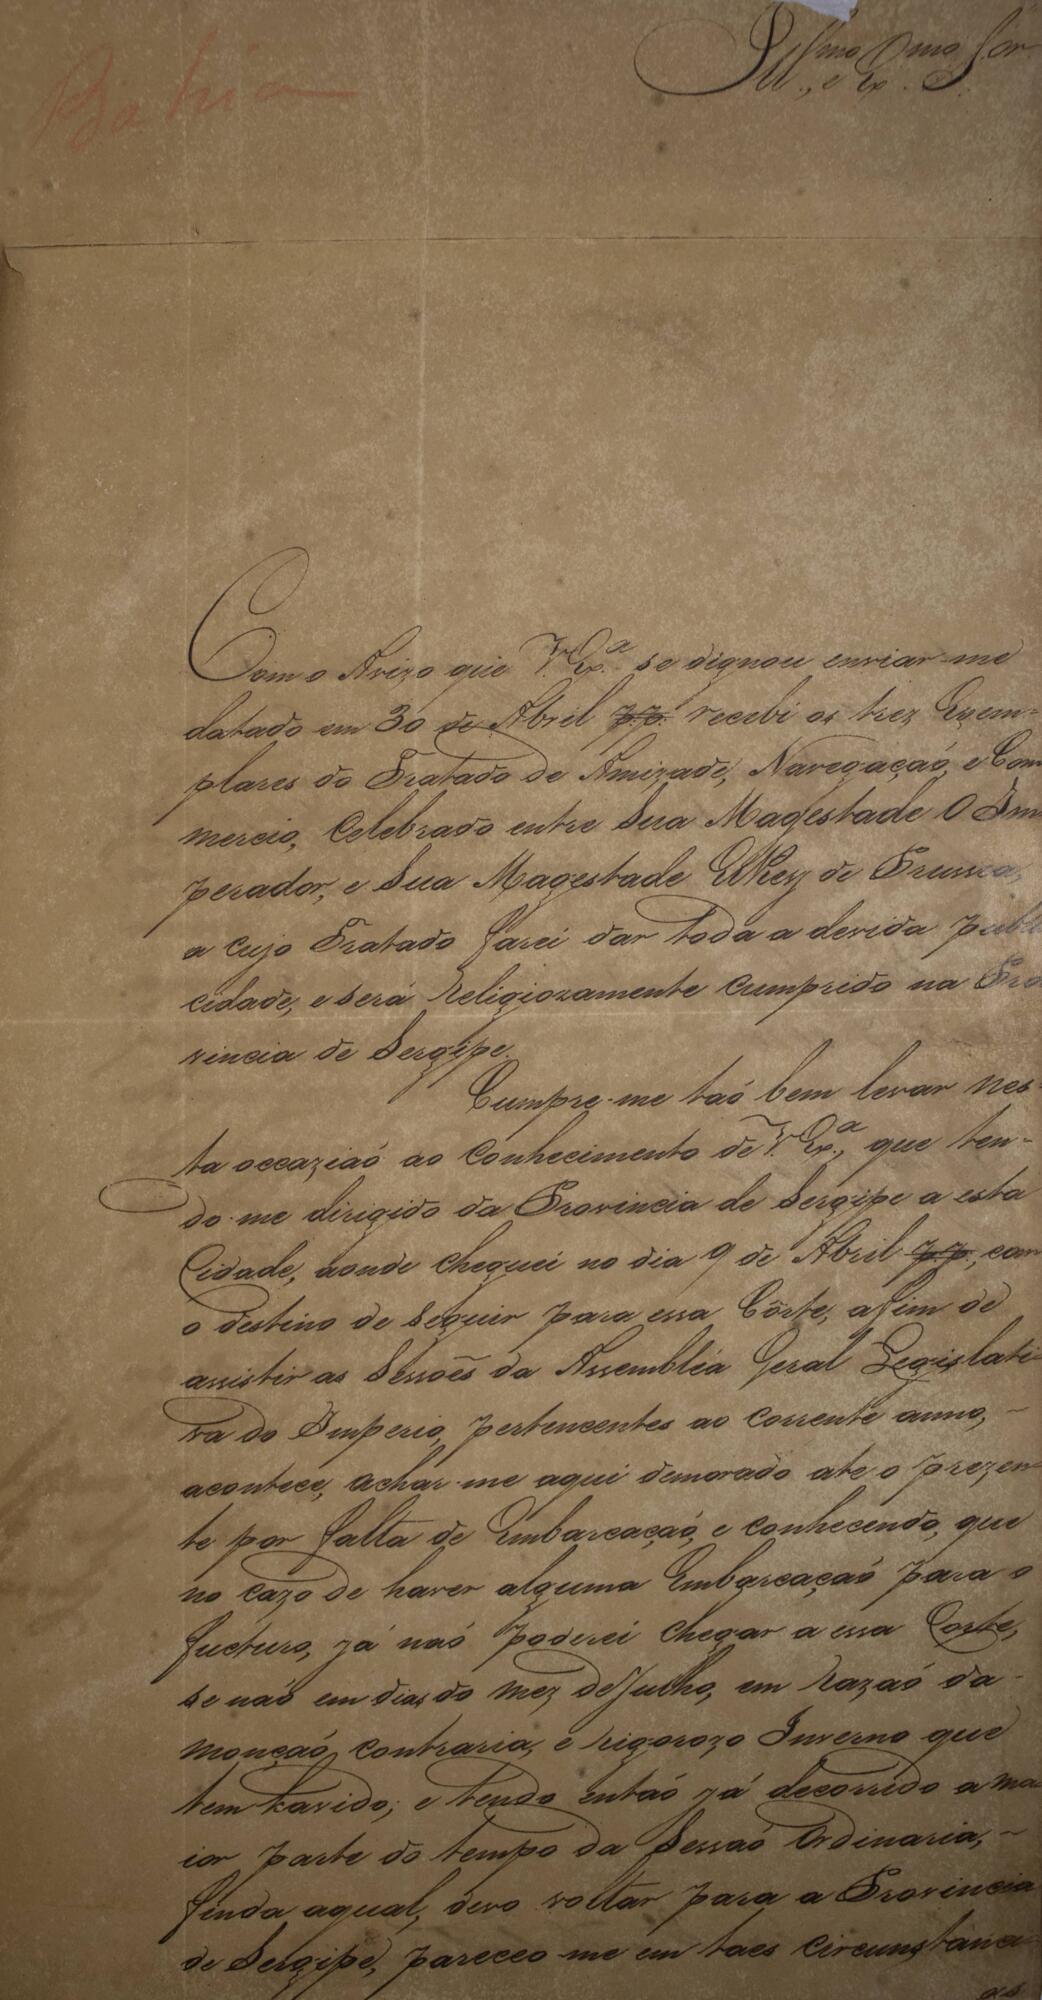 Bahia
Illmo, e Exmo Snr.
Com o Avizo que V. Exª. se dignou enviar-me
datado em 30 de Abril p.p. recebi os trez Exem=
plares do Tratado de Amizade, Navegaçaõ, e Com
mercio, Celebrado entre Sua Magestade O Im
perador, e Sua Magestade ElRey de Prussia,
a cujo Tratado farei dar toda a devida publi
cidade, e será Religiozamente cumprido na Pro
vincia de Sergipe.
Cumpre-me taõ bem levar nes-
ta occaziaõ ao conhecimento de V. Exª., que ten-
do-me dirigido da Provincia de Sergipe a esta
Cidade, aonde cheguei no dia 9 de Abril p.p., com
o destino de seguir para essa Côrte, afim de
assistir as Sessões da Assembléa Geral Legislati
va do Imperio, pertencentes ao corrente anno, -
acontece, achar-me aqui demorado até o prezen
te por falta de Embarcaçaõ, e conhecendo, que
no cazo de haver alguma Embarcaçaõ para o
fucturo, já naõ poderei chegar a essa Corte,
se naõ em dias do mez de Julho, em razaõ da -
monçaõ contraria, e rigorozo Inverno que
tem havido; e tendo entaõ já decorrido a ma
ior parte do tempo da Sessaõ Ordinaria, -
finda aqual, devo voltar para a Provincia
de Sergipe, pareceo-me em taes circunstanci
as